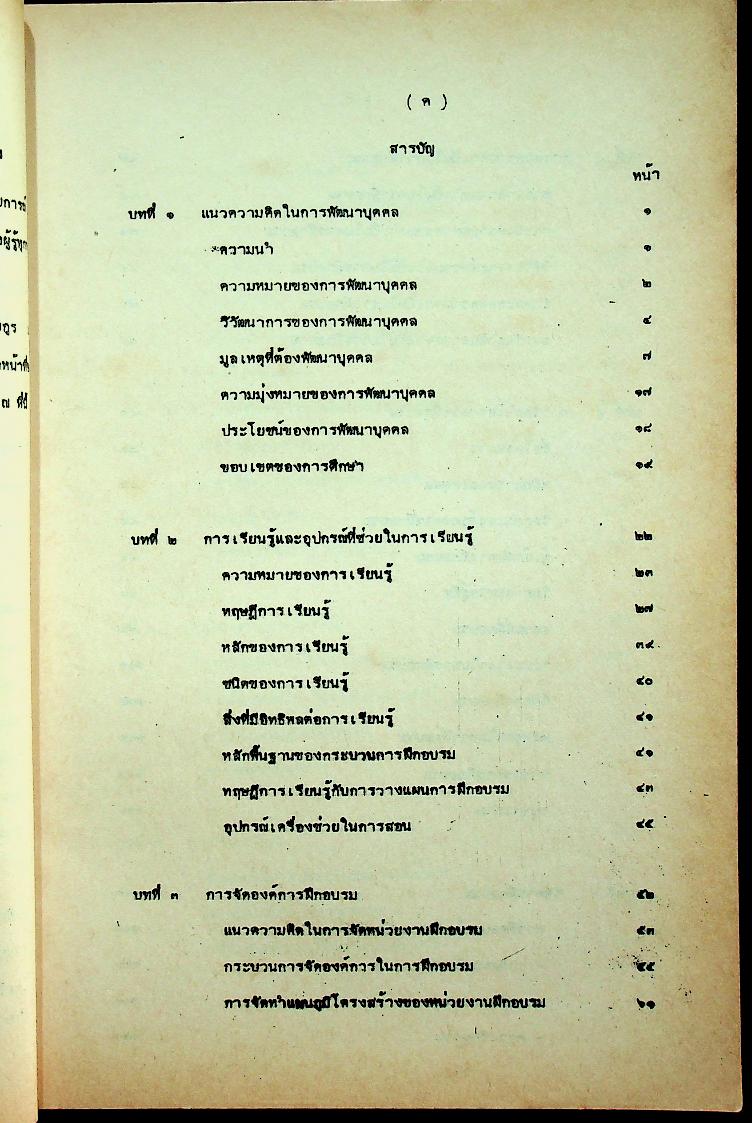 ( ค )
สารบัญ
หน้า
บทที่ ๑ แนวความคิดในการพัฒนาบุคคล ๑
ความนำ ๑
ความหมายของการพัฒนาบุคคล ๒
วิวัฒนาการของการพัฒนาบุคคล ๔
มูลเหตุที่ต้องพัฒนาบุคคล ๗
ความมุ่งหมายของการพัฒนาบุคคล ๑๗
ประโยชน์ของการพัฒนาบุคคล ๑๘
ขอบเขตของการศึกษา ๑๙
บทที่ ๒ การเรียนรู้และอุปกรณ์ที่ช่วยในการเรียนรู้ ๒๒
ความหมายของการเรียนรู้ ๒๓
ทฤษฎีการเรียนรู้ ๒๗
หลักของการเรียนรู้ ๓๙
ชนิดของการเรียนรู้ ๔๐
สิ่งที่มีอิทธิพลต่อการเรียนรู้ ๔๑
หลักพื้นฐานของกระบวนการฝึกอบรม ๔๑
ทฤษฎีการเรียนรู้กับการวางแผนการฝึกอบรม ๔๓
อุปกรณ์เครื่องช่วยในการสอน ๔๕
บทที่ ๓ การจัดองค์การฝึกอบรม ๕๒
แนวความคิดในการจัดหน่วยงานฝึกอบรม ๕๓
กระบวนการจัดองค์การในการฝึกอบรม ๕๕
การจัดทำแผนภูมิโครงสร้างของหน่วยงานฝึกอบรม ๖๑